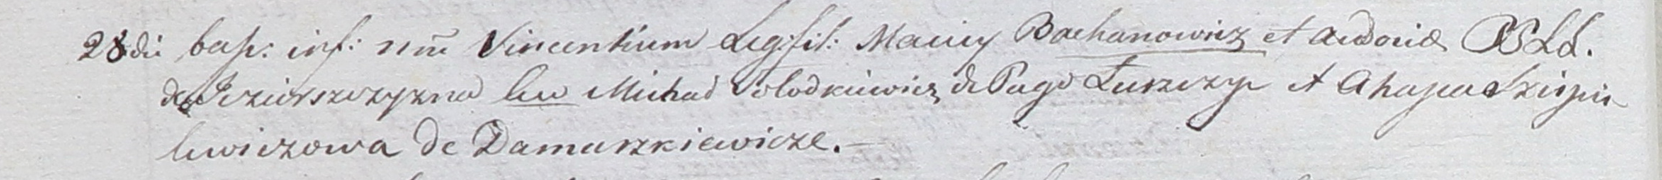 28 die bap: inf: nrē Vincentium Leg: fil: Maciey Bachanowicz et Audociæ PP LL.
de Jeziorszczyzna Lev Michael Wolodkiewicz de Pago Łuszczyc et Ahapia Szeypu
lewiczowa de Damaszkiewicze.